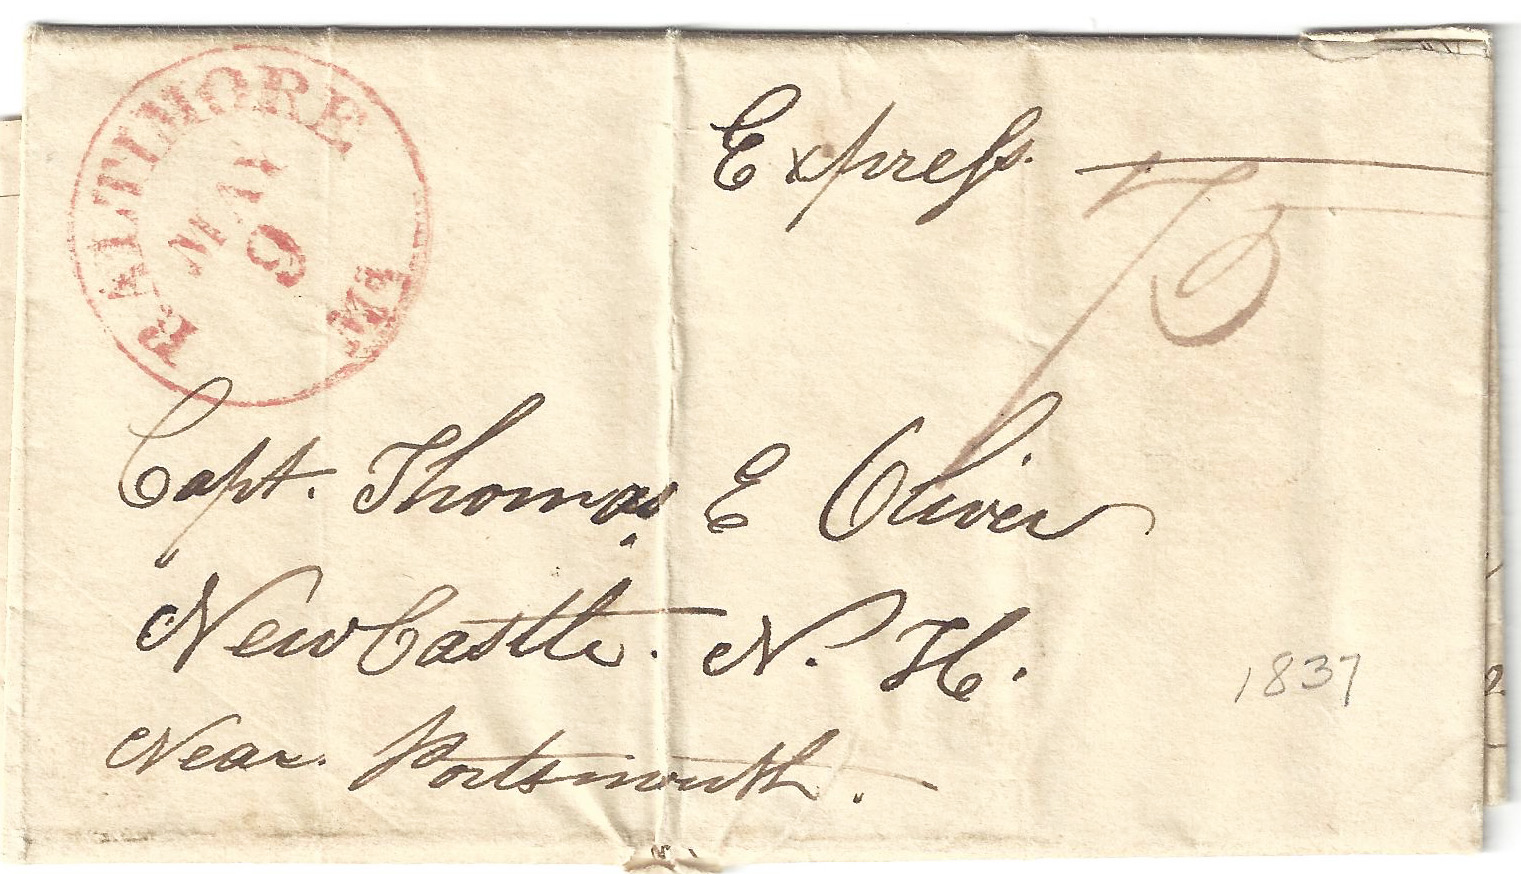 BALTIMORE Md.
MAY
9
Expreſs.
75
Capt. Thomas E Oliver
New Castle. N. H.
Near Portsmouth.
1837